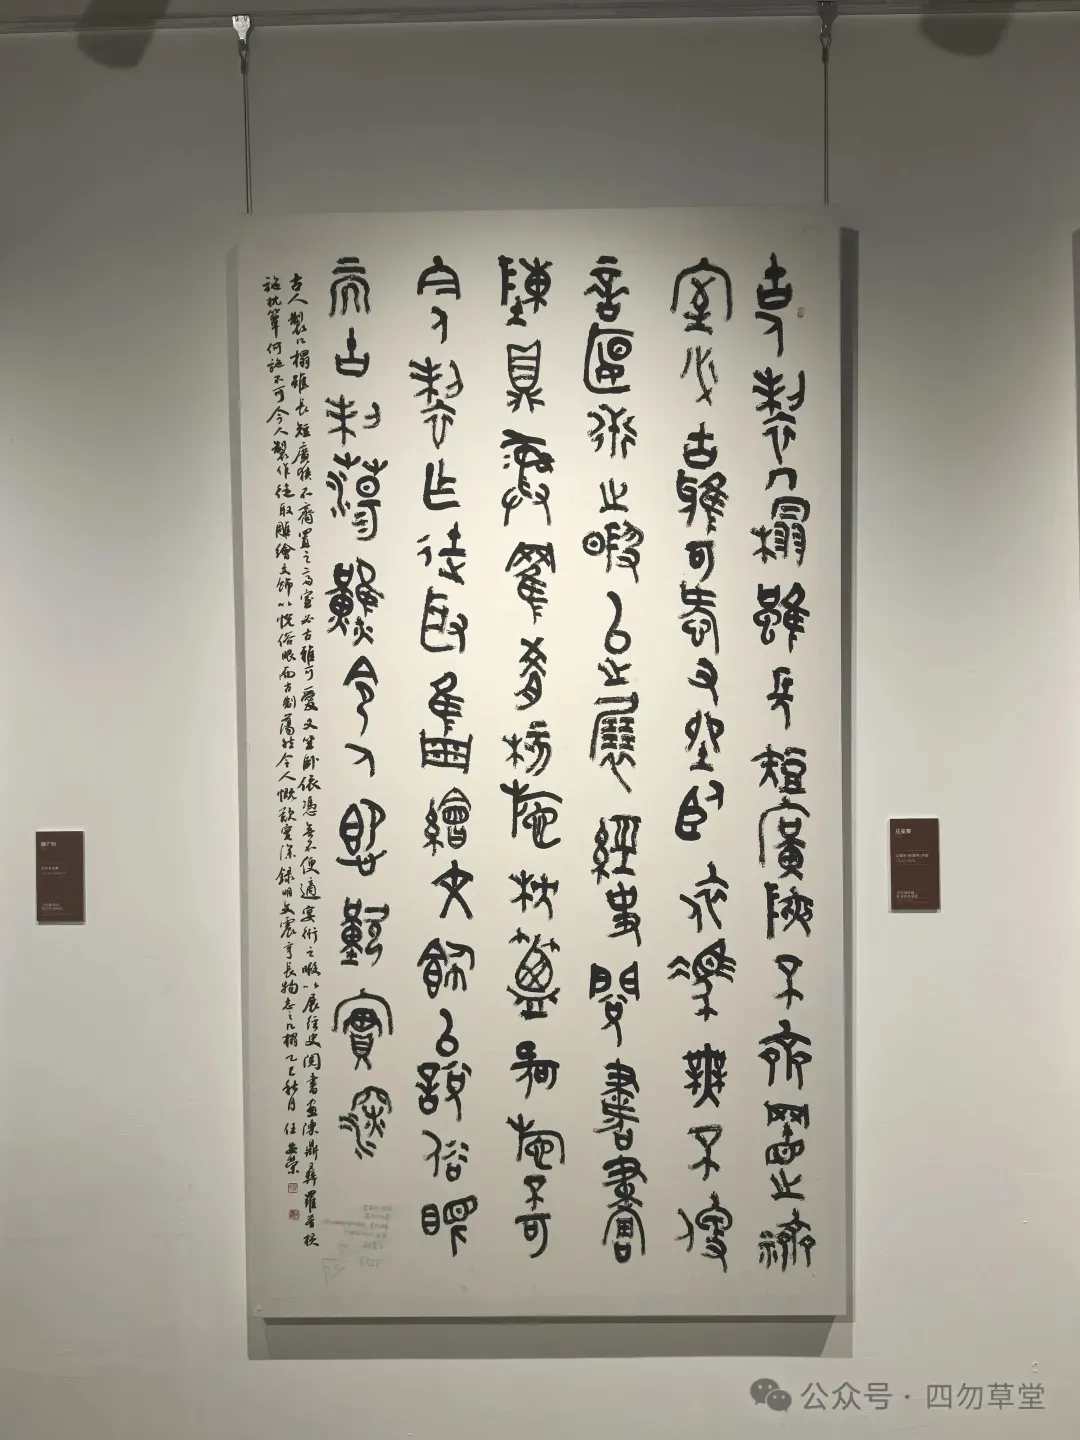 古人製几榻雖長短廣狹不齊置之齋
室必古雅可愛又坐臥依憑無不便
適匽衎之暇以之展經史閱書畫
陳鼎彝羅肴核施枕簟何施不可
今人製作徒取雕繪文飾以悅俗眼
而古制蕩然令人慨歎實深
古人製几榻雖長短廣狹不齊置之高室必古雅可愛又坐臥依憑無不便適宴衎之暇以展經史閱書畫陳鼎彝羅肴核
施枕簟何施不可今人製作徒取雕繪文飾以悅俗眼而古制蕩然令人慨歎實深錄明文震亨長物志之几榻乙巳秋月任安榮
公众号·四勿草堂